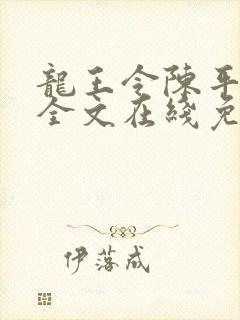 龍王令陳平
全文在綫免
伊落成